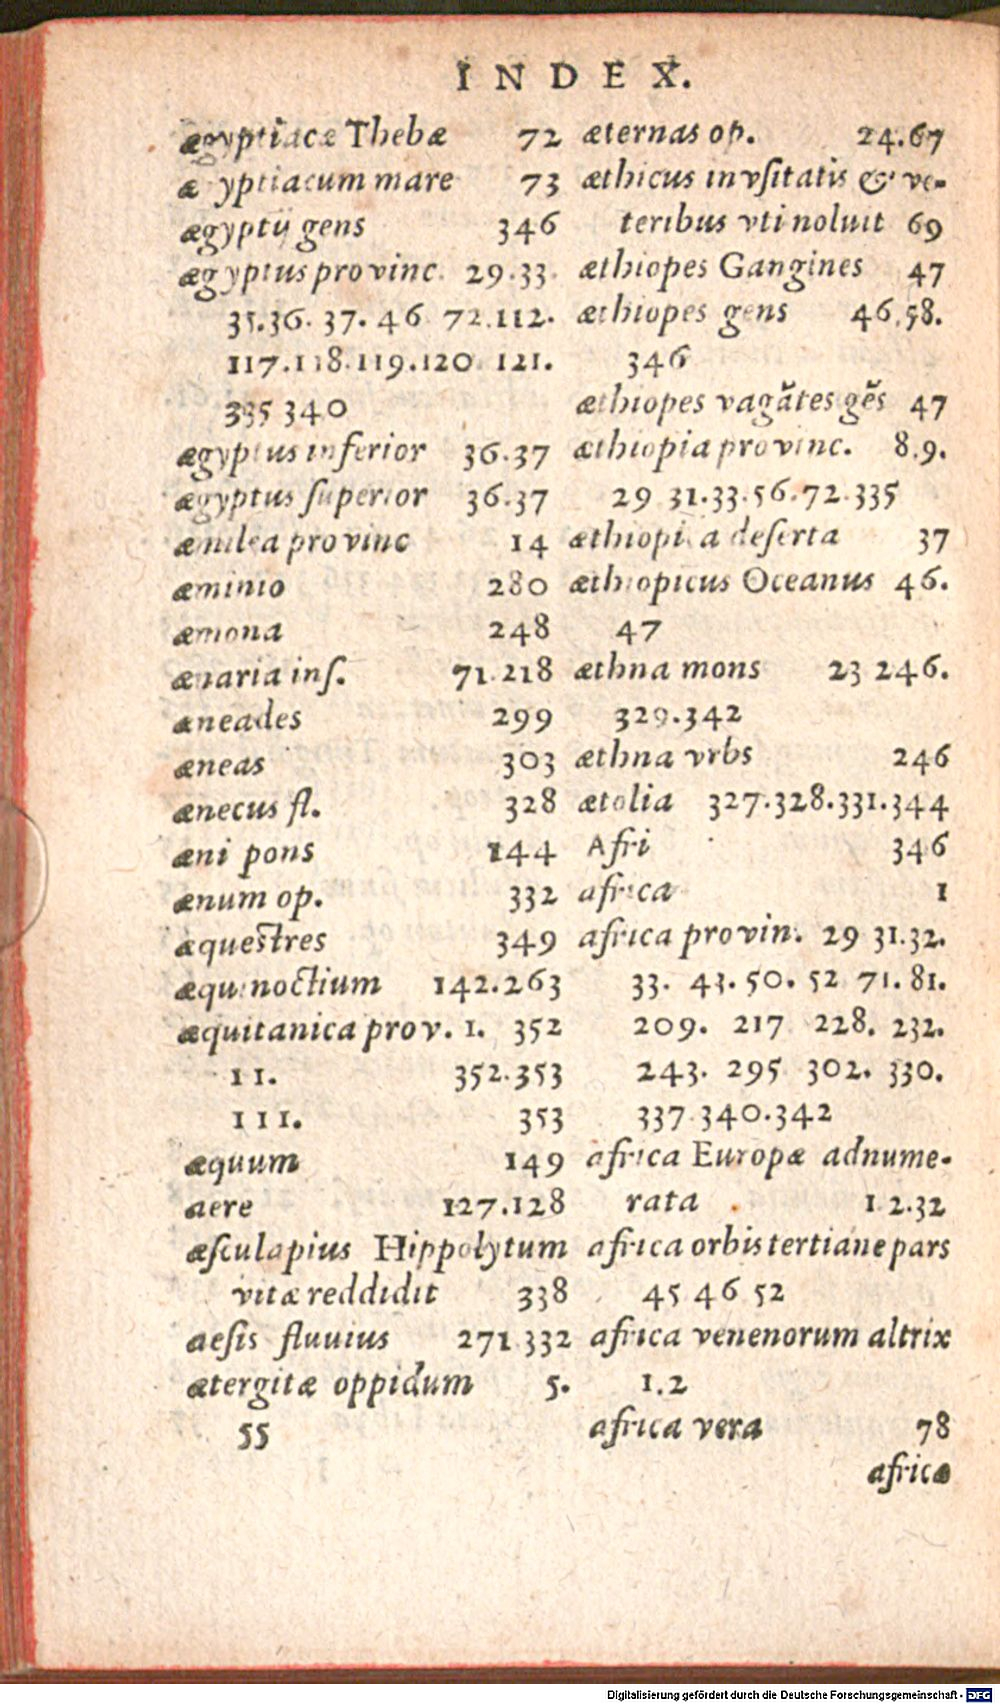 INDEX.
ægyptiacæ Thebæ 72
æ yptiacum mare 73
ægyptij gens 346
ægyptus provinc. 29.33.
35.36. 37. 46 72.112.
117.118.119.120 121.
335 340
ægyptus inferior 36.37
ægyptus superior 36.37
æmilea provinc 14
æminio 280
æmona 248
ænaria inſ. 71.218
æneades 299
æneas 303
ænecus fl. 328
æni pons 144
ænum op. 332
æquestres 349
æquinoctium 142.263
æquitanica prov. I. 352
II. 352.353
III. 353
æquum 149
aere 127.128
æſculapius Hippolytum
vitæ reddidit 338
aeſis fluvius 271.332
ætergitæ oppidum 5.
55
æternas op. 24.67
æthicus invſitatis & ve-
teribus vti noluit 69
æthiopes Gangines 47
æthiopes gens 46.58.
346
æthiopes vagātes gēs 47
æthiopia provinc. 8.9.
29 31.33.56.72.335
æthiopi a deſerta 37
æthiopicus Oceanus 46.
47
æthna mons 23 246.
329.342
æthna vrbs 246
ætolia 327.328.331.344
Afri 346
africa 1
africa provin. 29 31.32.
33. 43.50. 52 71.81.
209. 217 228. 232.
243. 295 302. 330.
337 340.342
africa Europæ adnume-
rata 1.2.32
africa orbis tertiane pars
45 46 52
africa venenorum altrix
1.2
africa vera 78
africæ